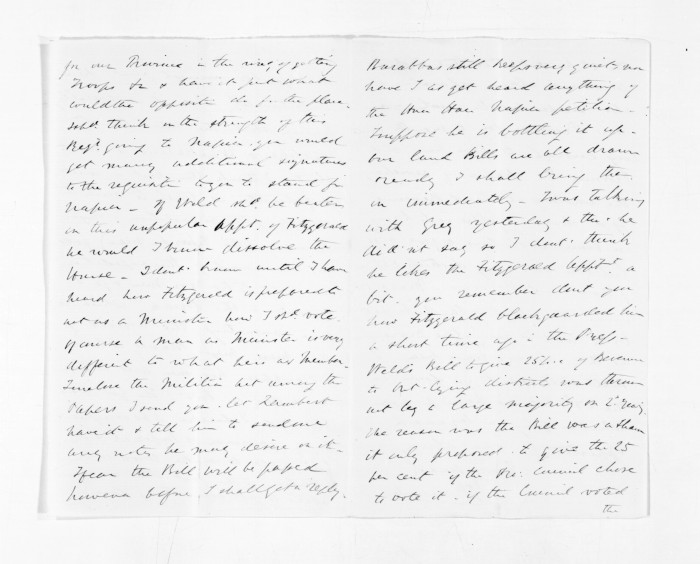 for our Province in the way of getting
Troops &c & have it just what
would the opposite do for the place.
I shd. think on the strength of this
Regt. going to Napier you would
get many additional signatures
to the requisition to you to stand for
Napier - If Weld shd. be beaten
in this unpopular appt. of Fitzgerald
he would I know dissolve the
House - I dont know until I have
heard how Fitzgerald is prepared to
act as a Minister how I shd. vote.
Of course a man as Minister is very
different to what he is as Member.
I enclose the Militia Act among the
Papers I send you - let Lambert
have it & tell him to send me
any notes he may desire on it -
I fear the Bill will be passed
however before I shall get a reply.
Barabbas still keeps very quiet, nor
have I as yet heard anything of
the Napier petition -
I suppose he is bottling it up -
Our land Bills are all drawn
ready I shall bring them
in immediately - I was talking
with Grey yesterday & tho' he
did not say so I dont think
he likes the Fitzgerald Appt. a
bit. you remember dont you
how Fitzgerald blackguarded him
a short time ago in the Press -
Weld's Bill to give 25 p.c. of Revenue
to Out-lying districts was thrown
out by a large majority on 2d. reading.
The reason was the Bill was a sham
it only proposed to give the 25
per cent if the Pro: Council chose
to vote it - if the Council voted
the